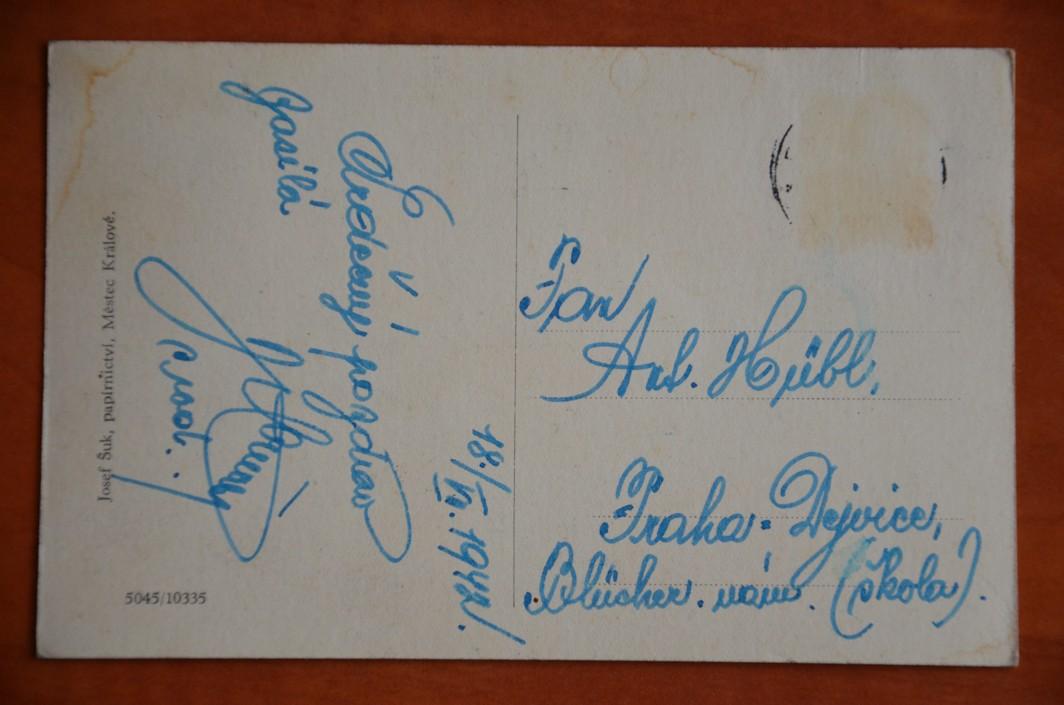 18./VI.1942.
Srdečný pozdrav
zasílá
Josef Šuk, papírnictví, Městec Králové.
5045/10335
Pan
Ant. Hübl,
Praha-Dejvice,
Blücher. nám. (škola).